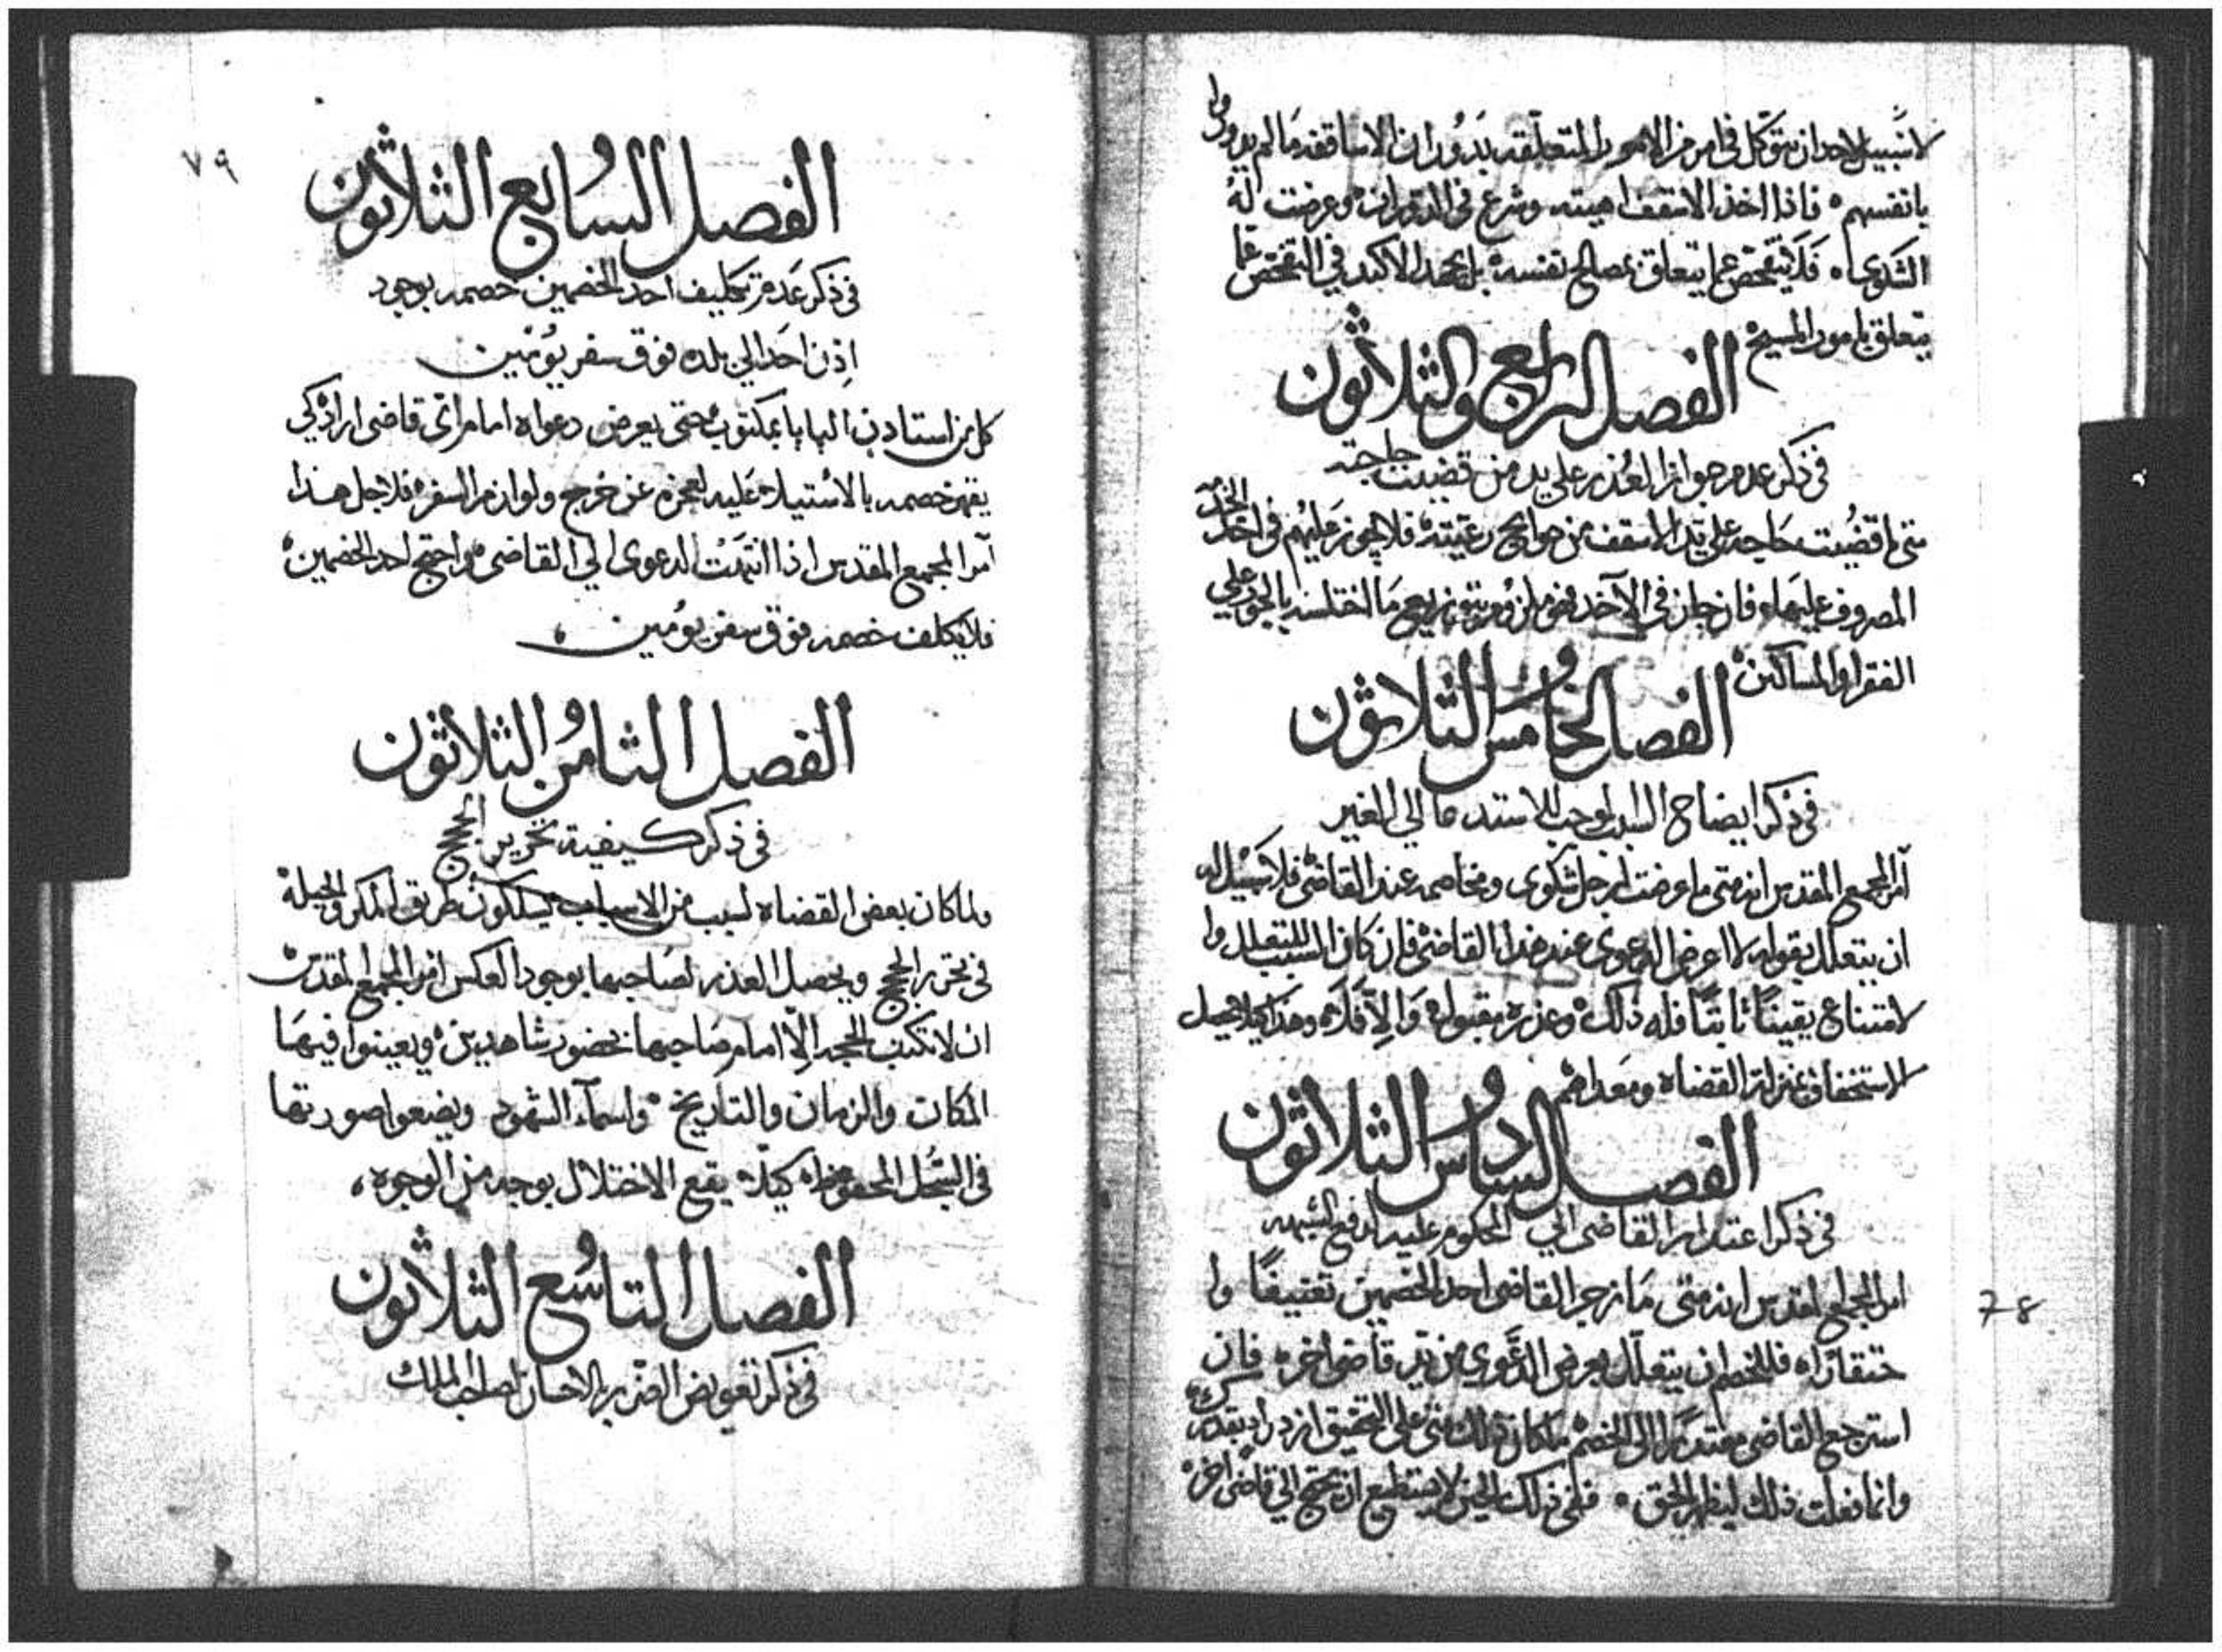 لا سبيل لاحد ان يتوكل في امر من الامور المتعلقه بدوران الاساقفه مالم يدوروا
بانفسهم ۰ فاذا اخذ الاسقف اهبته وشرع في الدوران ۰ وعرضت له
الشكوى ۰ فلا يتفحص عما يتعلق بمصالح نفسه ۰ بل يجهد الاكيد في التفحص عما
يتعلق بامور المسيح ۰
الفصل الرابع والثلاثون
في ذكر عدم جواز العذر على يد من قضيت حاجته
متى ما قضيت حاجه على يد الاسقف من حوايج رعيته ۰ فلا يجوز عليهم في اخذ الخرج
المصروف عليها ۰ فان جار في الآخد فهو ملزوم بتوزيع ما اختلسه بالجور على
الفقرا والمساكين ۰
الفصل الخامس والثلاثون
في ذكر ايضاح السبب لوجب الاستدعا الى الغير
آمر المجمع المقدس انه متى ما عرضت لرجل شكوى ومخاصمه عند القاضي فلا سبيل له
ان يتعلل بقوله لا اعرض الدعوى عند هذا القاضي ۰ فان كان السبب للتعلل وا
لامتناع يقينًا ثابتًا فله ذلك ۰ وعذره مقبول ۰ وَاِلّا فَلَا ۰ وهذا كيلا يحصل
الاستخفاف بمنزلة القضاة ومعدلهم
الفصل السادس والثلاثون
في ذكر اعتدار القاضي الى المحكوم عليه لدفع الشبهه
امر المجمع المقدس انه متى ما زجر القاضي احد الخصمين تعنيفًا وا
حتقارًا ۰ فللخصم ان يتعلل بعرض الدعوى بين يدي قاضي اخر ۰ فان
استرجع القاضي معتدرًا الى الخصم ما كان ذلك مني على التحقيق
وانما فعلت ذلك ليظهر الحق ۰ ففي ذلك الحين لا يستطيع ان يحتج الى قاضي اخر ۰
78
٧٩
الفصل السابع والثلاثون
في ذكر عدم تكليف احد الخصمين خصمه بوجود
اذن احد الى بلده فوق سفر يومين
كل من استادن البابا بمكتوب حتى يعرض دعواه امام اي قاضي اراد كي
يقهر خصمه بالاستيلاء عليه لعجزه عن خرج ولوازم السفر ۰ فلاجل هذا
آمر المجمع المقدس اذا انتهت الدعوى الى القاضي ۰ واحتج احد الخصمين ۰
فلا يكلف خصمه فوق سفر يومين ۰
الفصل الثامن والثلاثون
في ذكر كيفية تحرير الحجج
ولما كان بعض القضاه لسبب من الاسباب يسلكون طريق المكر والحيلة
في تحرير الحجج ويحصل العذر لصاحبها بوجود العكس امر المجمع المقدس
ان لا تكتب الحجه اِلّا امام صاحبها بحضور شاهدين ۰ ويعينوا فيها
المكان والزمان والتاريخ ۰ واسمآء الشهود ويضعوا صورتها
في السجل المحفوظ ۰ كيلا يقع الاختلال بوجه من الوجوه ،
الفصل التاسع والثلاثون
في ذكر تعويض الضرر بالاحسان لصاحب الملك